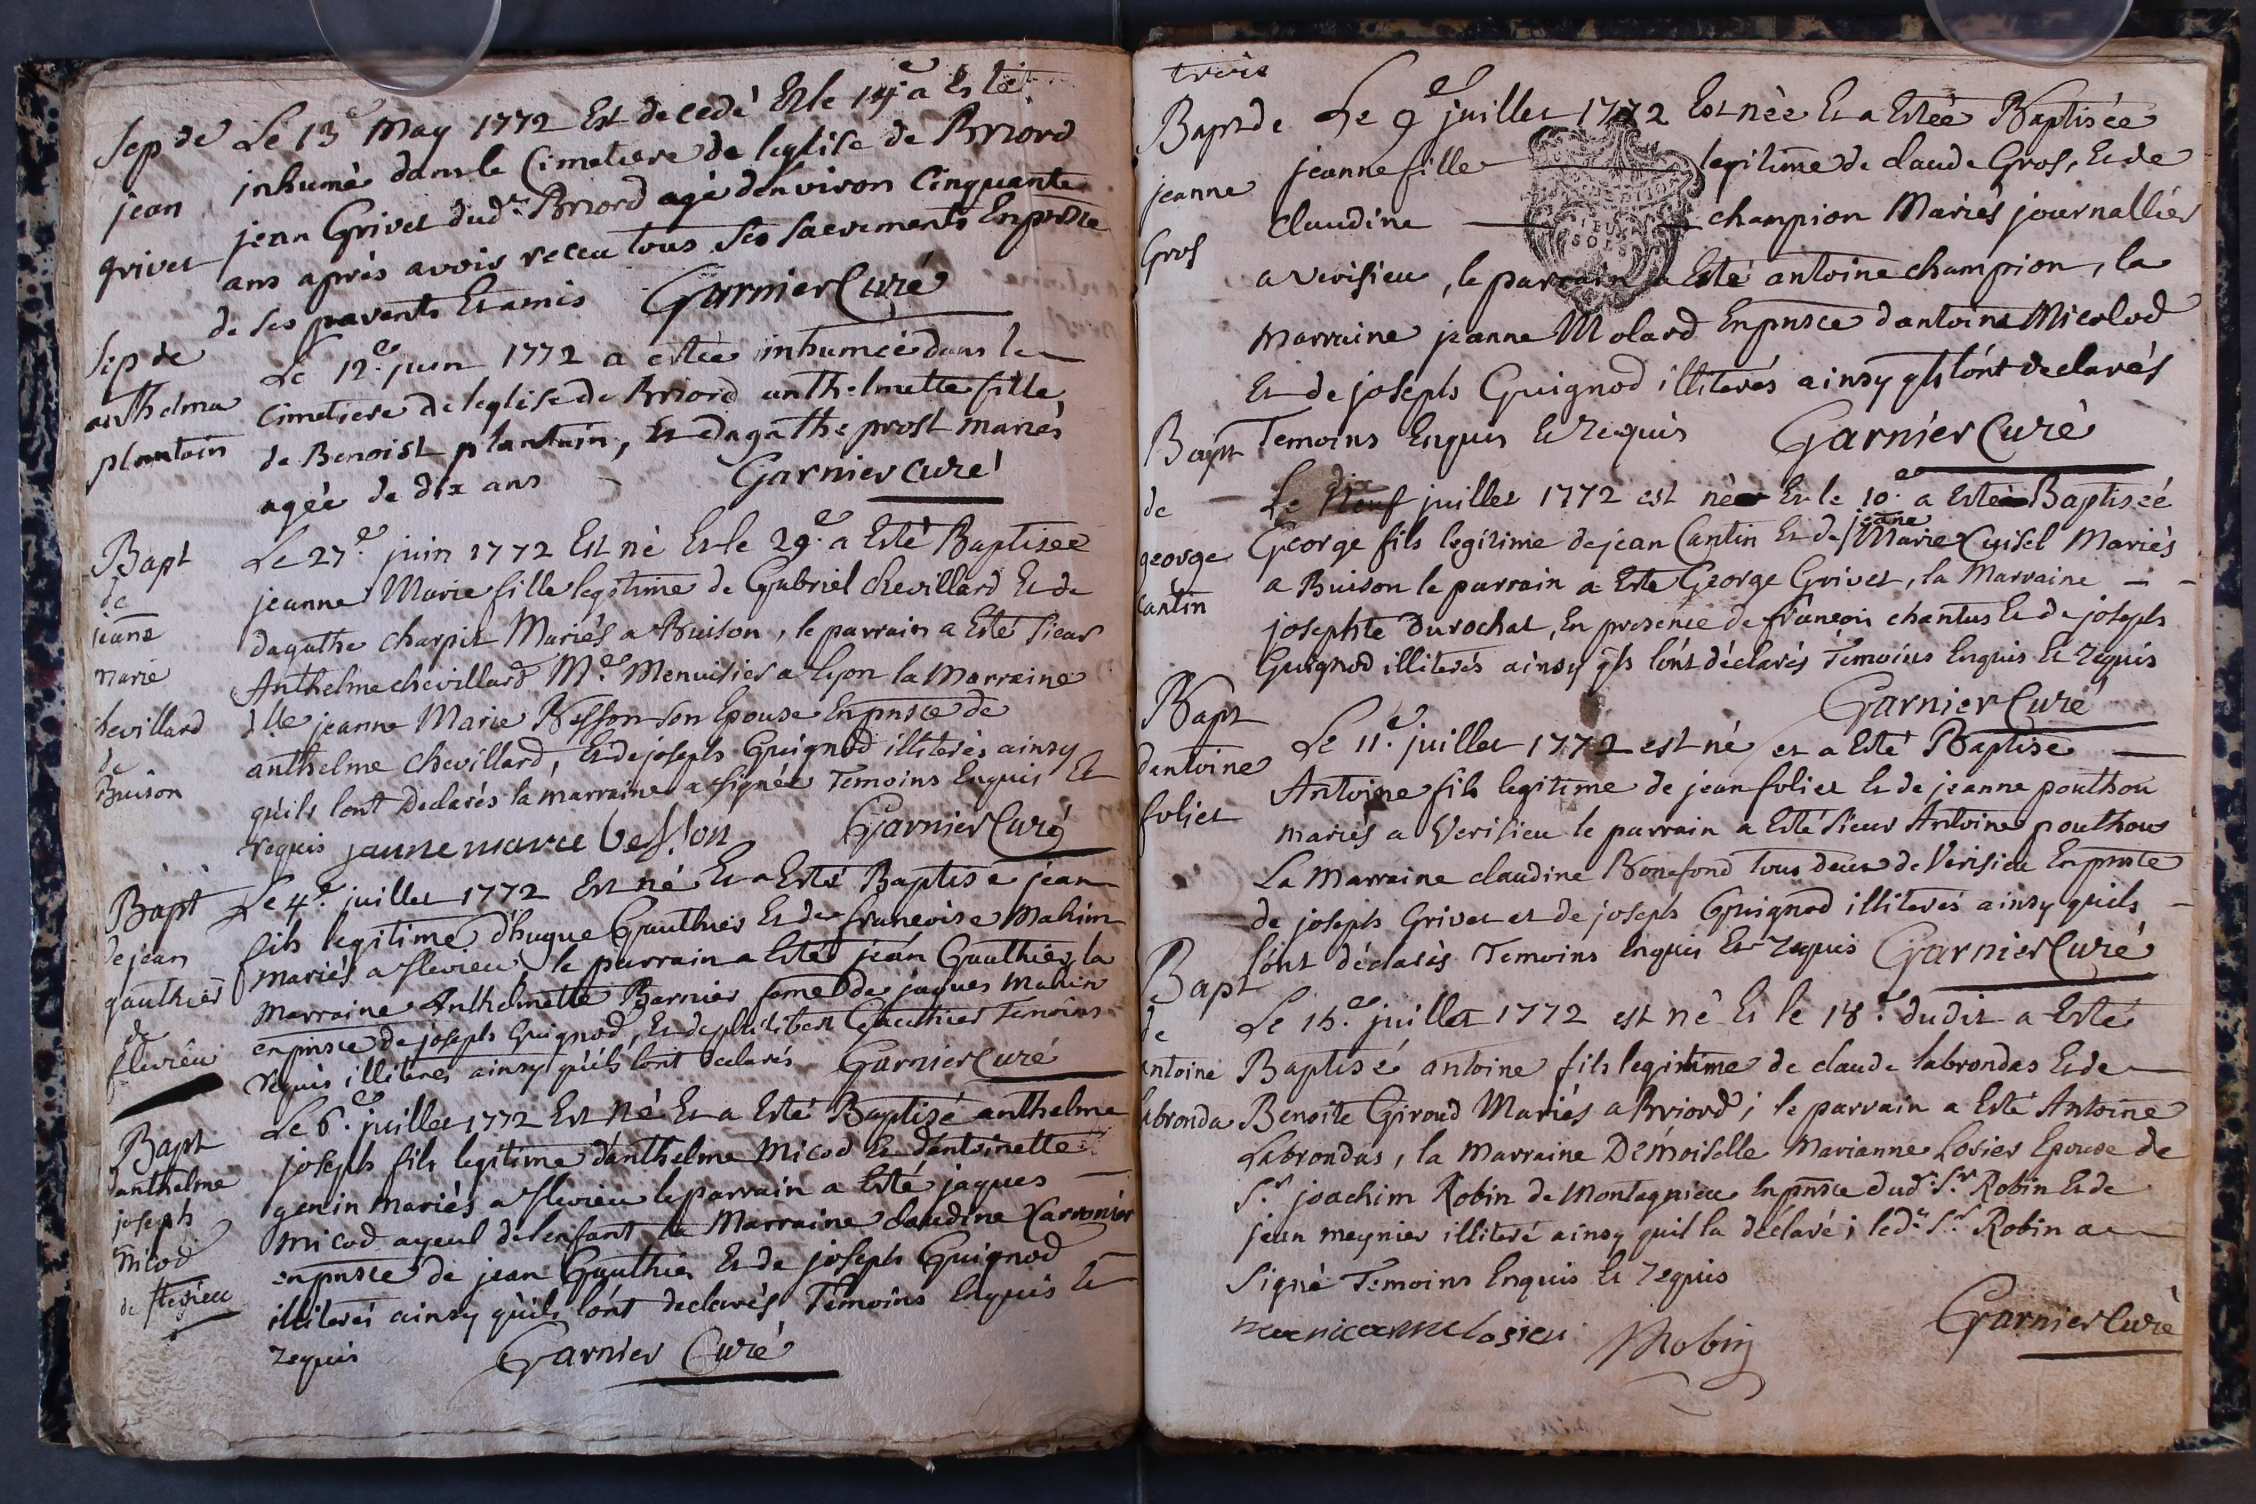 Sep de
jean
grivet
Le 13e May 1772 Est decedé Et le 14e a Esté
jnhumé dans le Cimetiere de leglise de Briord
jean Grivet dud.t Briord agé denviron Cinquante
ans après avoir receu tous Ses Sacrements Enpnsce
de ses parents Et amis Garnier Curé
Sep de
anthelma
plantain
Le 12e juin 1772 a estée inhumée dans le
Cimetiere de leglise de Briord anthelmette fille
de Benoist plantain, Et dagathe prost mariés
agée de dix ans Garnier curé
Bapt
de
jeane
marie
chevillard
de
Buison
Le 27e juin 1772 Est né Et le 29e a Esté Baptisee
jeanne Marie fille legitime de Gabriel chevillard Et de
dagathe charpit Mariés a Buison, le parrain a Esté Sieur
Anthelme chevillard Me Menuisier a lyon la Marraine
d.lle jeanne Marie Besson Son Epouse Enpnsce de
anthelme chevillard, Et de joseph Guignod illiterés ainsy
quils lont Declarés la marraine a signée Temoins Enquis Et
requis janne marie besson Garnier Curé
Bapt
de jean
gauthier
de
flevieu
Le 4e juillet 1772 Est né Et a Esté Baptisé jean
fils legitime d'hugue Gauthier Et de francoise Mahim
mariés a flevieu le parrain a Esté jean Gauthier, la
marraine Anthelmette Barnier feme de jaques Mahin
enpnsce de joseph Guignod, Et de philibert Gauthier Temoins
requis illiteres ainsy quils lont declarés Garnier Curé
Bapt
danthelme
joseph
micod
de flevieu
Le 6e juillet 1772 Est Né Et a Esté Baptisé anthelme
joseph fils legitime danthelme Micod Et dantoinette
genin mariés a flevieu le parrain a Esté jaques
micod ayeul delenfant la Marraine claudine
enpnsce de jean Gauthier Et de joseph Guignod
illiterés ainsy quils lont declarés Temoins Enquis Et
requis Garnier Curé
trois
Bapt de
jeanne
Gros
Le 9e juillet 1772 Est née Et a Estée Baptisée
jeanne fille legitime de claude Gros, Et de
claudine champion Mariés journallier
a verisieu, le parrain a Esté antoine champion, la
marraine jeanne Molard Enpnsce dantoine Micolod
Et de joseph Guignod illiterés ainsy qls lont declarés
Temoins Enquis Et requis Garnier Curé
Bapt
de
george
Cantin
dix
Le Neuf juillet 1772 est né Et le 10e a Esté Baptiseé
jeane
George fils legitime de jean Cantin Et de Marie Cuisel Mariés
a Buison le parrain a Esté George Grivet, la Marraine
josephte Durochat, En presence de francois chantus Et de joseph
Guignod illiterés ainsy qls lont déclarés Temoins Enquis Et requis
Garnier Curé
Bapt
dantoine
foliet
Le 11e juillet 1772 est né et a Esté Baptisé
Antoine fils legitime de jean foliet Et de jeanne pouthon
mariés a Verisieu le parrain a Esté sieur Antoine pouthon
La Marraine claudine Bonefond tous deux de Verisieu Enpnsce
de joseph Grivet et de joseph Guignod illiterés ainsy quils
lont déclarés Temoins Enquis Et requis Garnier Curé
Bapt
de
antoine
labronda
Le 15e juillet 1772 est né Et le 18e dudit a Esté
Baptisé antoine fils legitime de claude labrondas Et de
Benoite Giroud Mariés a Briord; le parrain a Esté Antoine
Labrondas, la marraine Demoiselle Marianne Losier Epouse de
S.r joachim Robin de Montagnieu Enpnsce dud.t S.r Robin Et de
jean meynier illiteré ainsy quil la déclaré; led.t S.r Robin a
signé Temoins Enquis Et requis
marianne losier Robin Garnier Curé